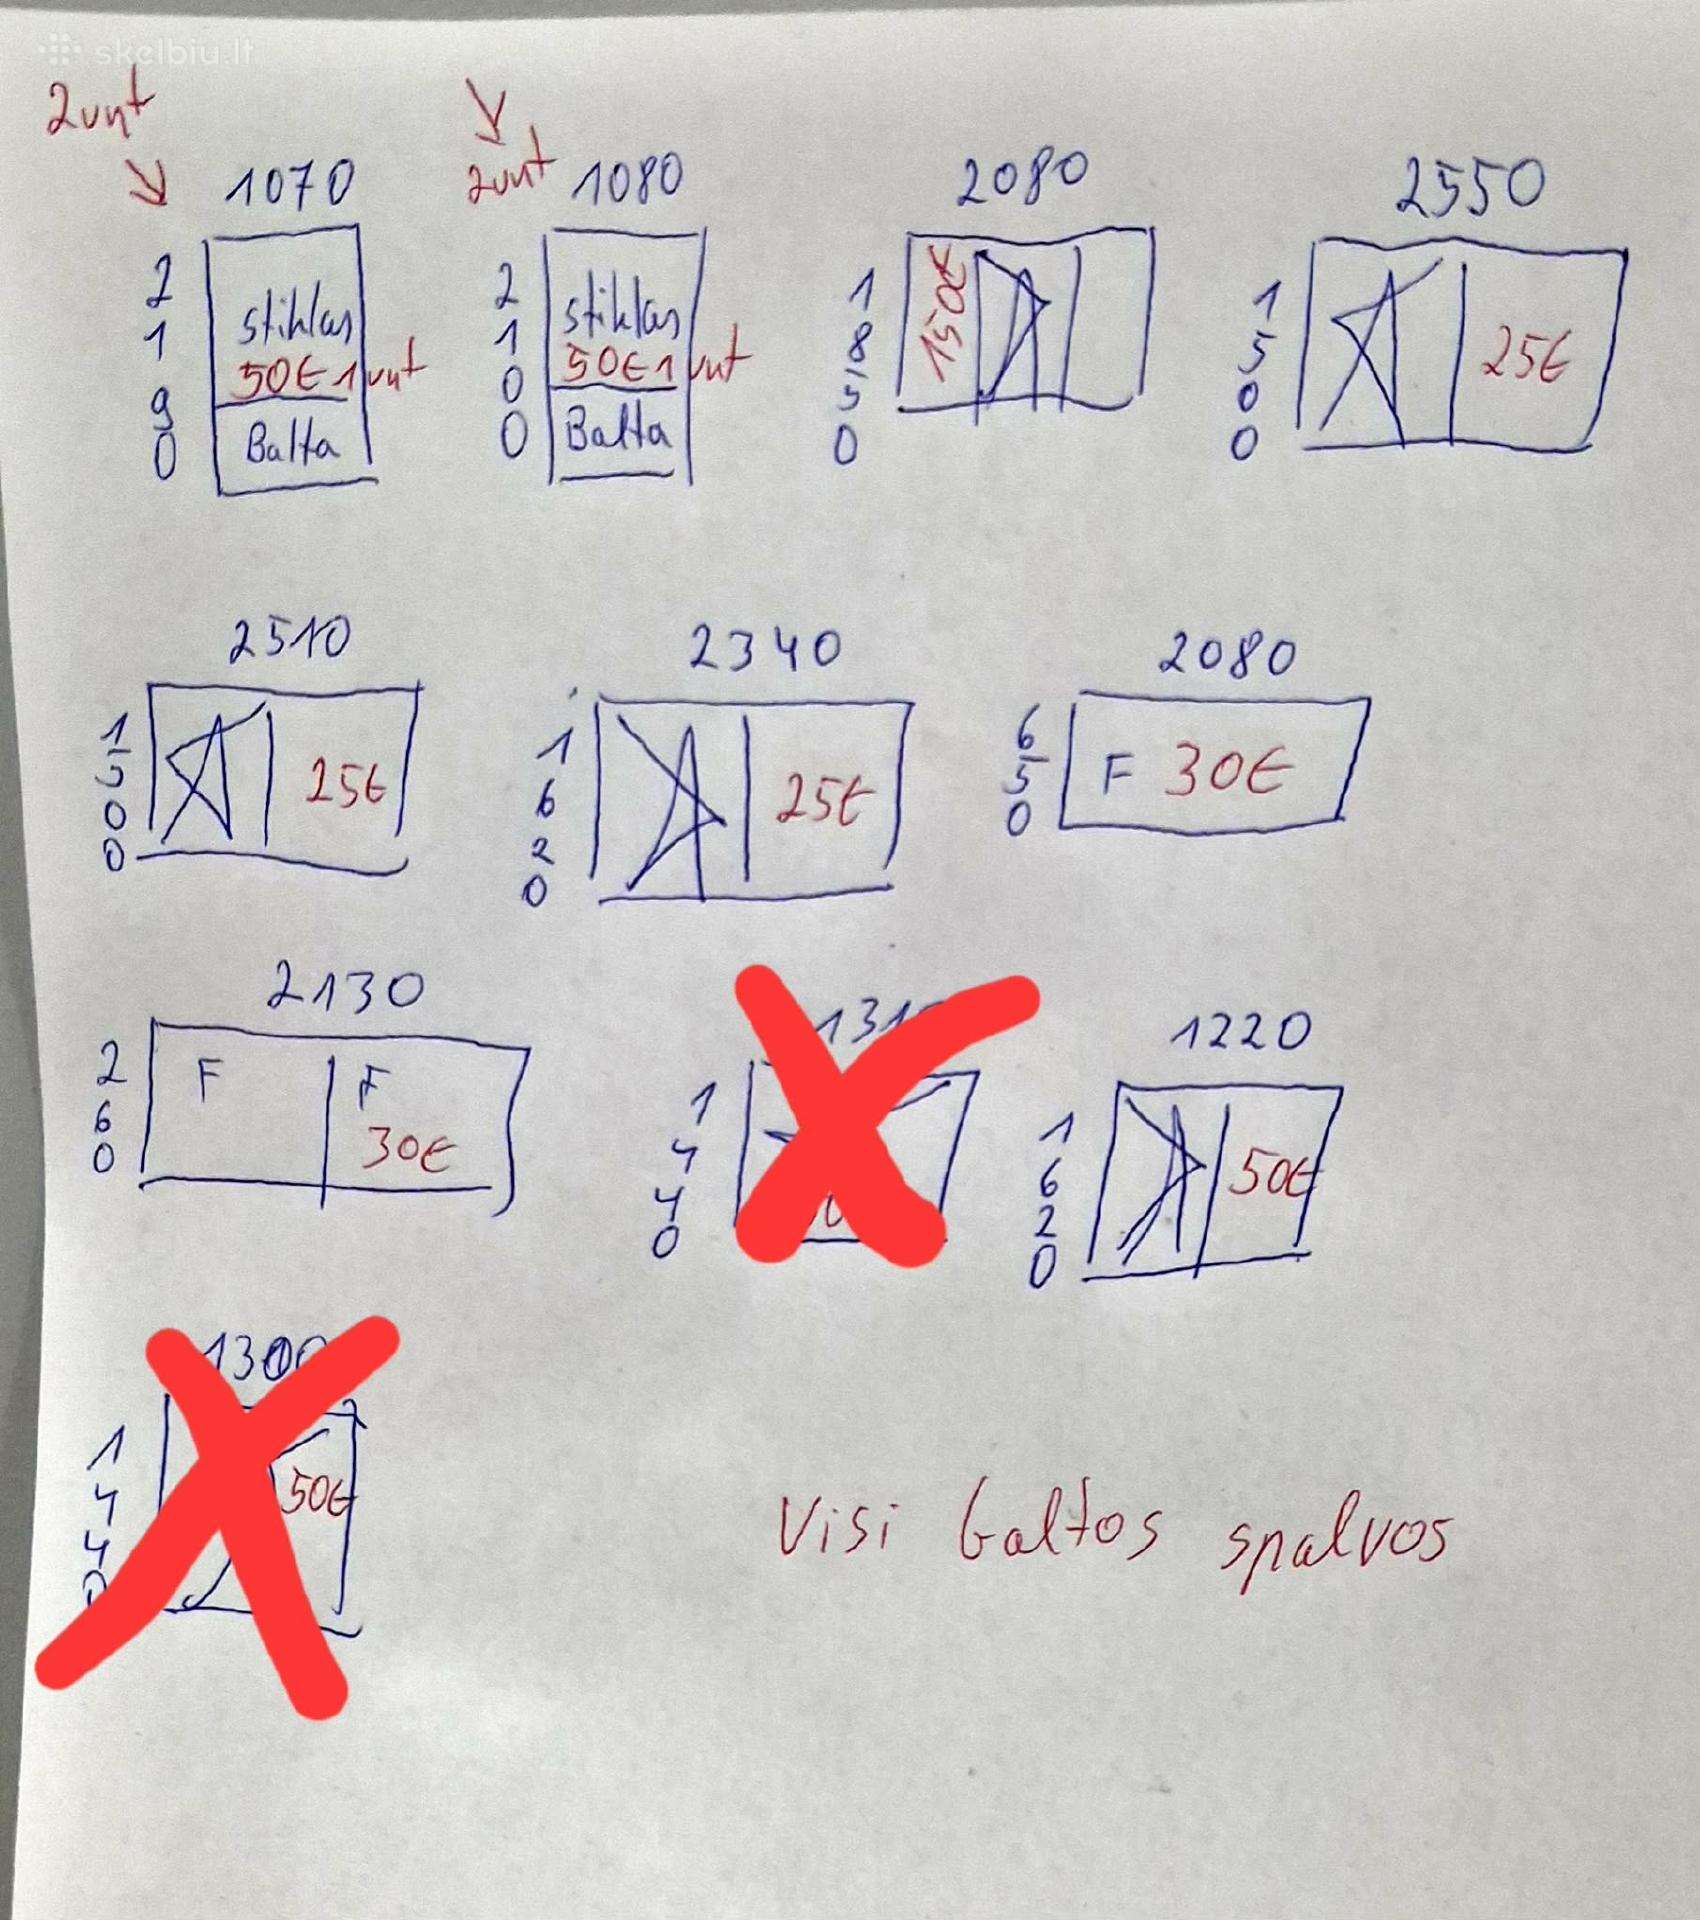 skelbiu.lt
2vnt
2vnt
1070
2190
stiklas
50€ 1vnt
Balta
1080
2100
stiklas
50€ 1vnt
Balta
2080
1850
150€
2550
1500
25€
2510
1500
25€
2340
1620
25€
2080
650
F 30€
2130
260
F F
30€
1440
1220
1620
50€
1440
50€
Visi baltos spalvos